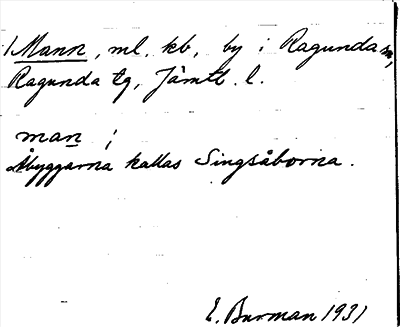 1 Mann, ml. kb, by i Ragunda sn,
Ragunda tg, Jämtl. l.
man i
Åbyggarna kallas Singsåborna.
E. Burman 1931